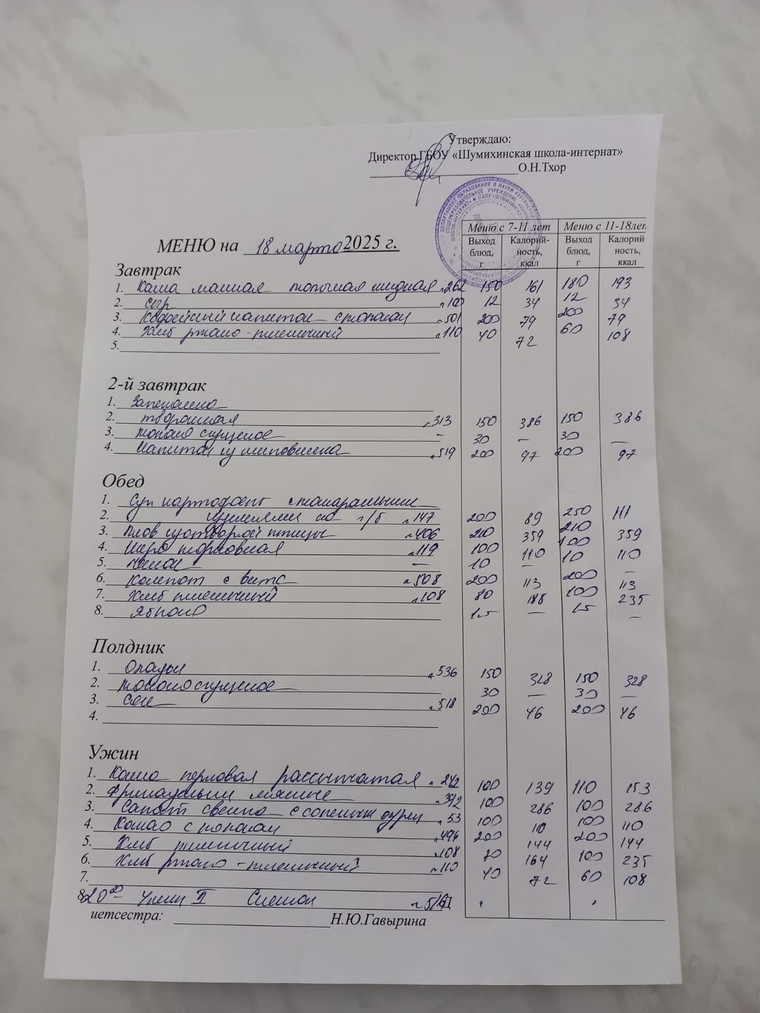 Утверждаю:
Директор ГБОУ «Шумихинская школа-интернат»
О.Н.Тхор
МЕНЮ на 18 марта 2025 г.
Меню с 7-11 лет Меню с 11-18лет
Выход блюд, г Калорий-ность, ккал Выход блюд, г Калорий ность, ккал
Завтрак
1. Каша манная молочная жидкая 262 150 161 180 193
2. Сыр 100 12 34 12 34
3. Кофейный напиток с молоком 501 200 79 200 79
4. Хлеб ржано-пшеничный 110 40 72 60 108
5.
2-й завтрак
1. Запеканка
2. творожная 313 150 386 150 386
3. молоко сгущеное – 30 – 30 –
4. Напиток из шиповника 519 200 97 200 97
Обед
1. Суп картофель с макаронными
2. изделиями на м/б 147 200 89 250 111
3. Плов из отварной птицы 406 210 359 210 359
4. Икра морковная 119 100 110 100 110
5. – 10 – 10 –
6. Компот с вит С 508 200 113 200 113
7. Хлеб пшеничный 108 80 188 100 235
8. Яблоко 1,5 – 1,5 –
Полдник
1. Оладьи 536 150 328 150 328
2. молоко сгущеное 30 – 30 –
3. Сок 518 200 46 200 46
4.
Ужин
1. Каша перловая рассыпчатая 242 100 139 110 153
2. Фрикадельки мясные 392 100 286 100 286
3. Салат свекла с солеными огурц 53 100 110 100 110
4. Какао с молоком 496 200 144 200 144
5. Хлеб пшеничный 108 70 164 100 235
6. Хлеб ржано-пшеничный 110 40 72 60 108
7.
8. 20⁰⁰ – Ужин II
иетсестра: Н.Ю.Гавырина